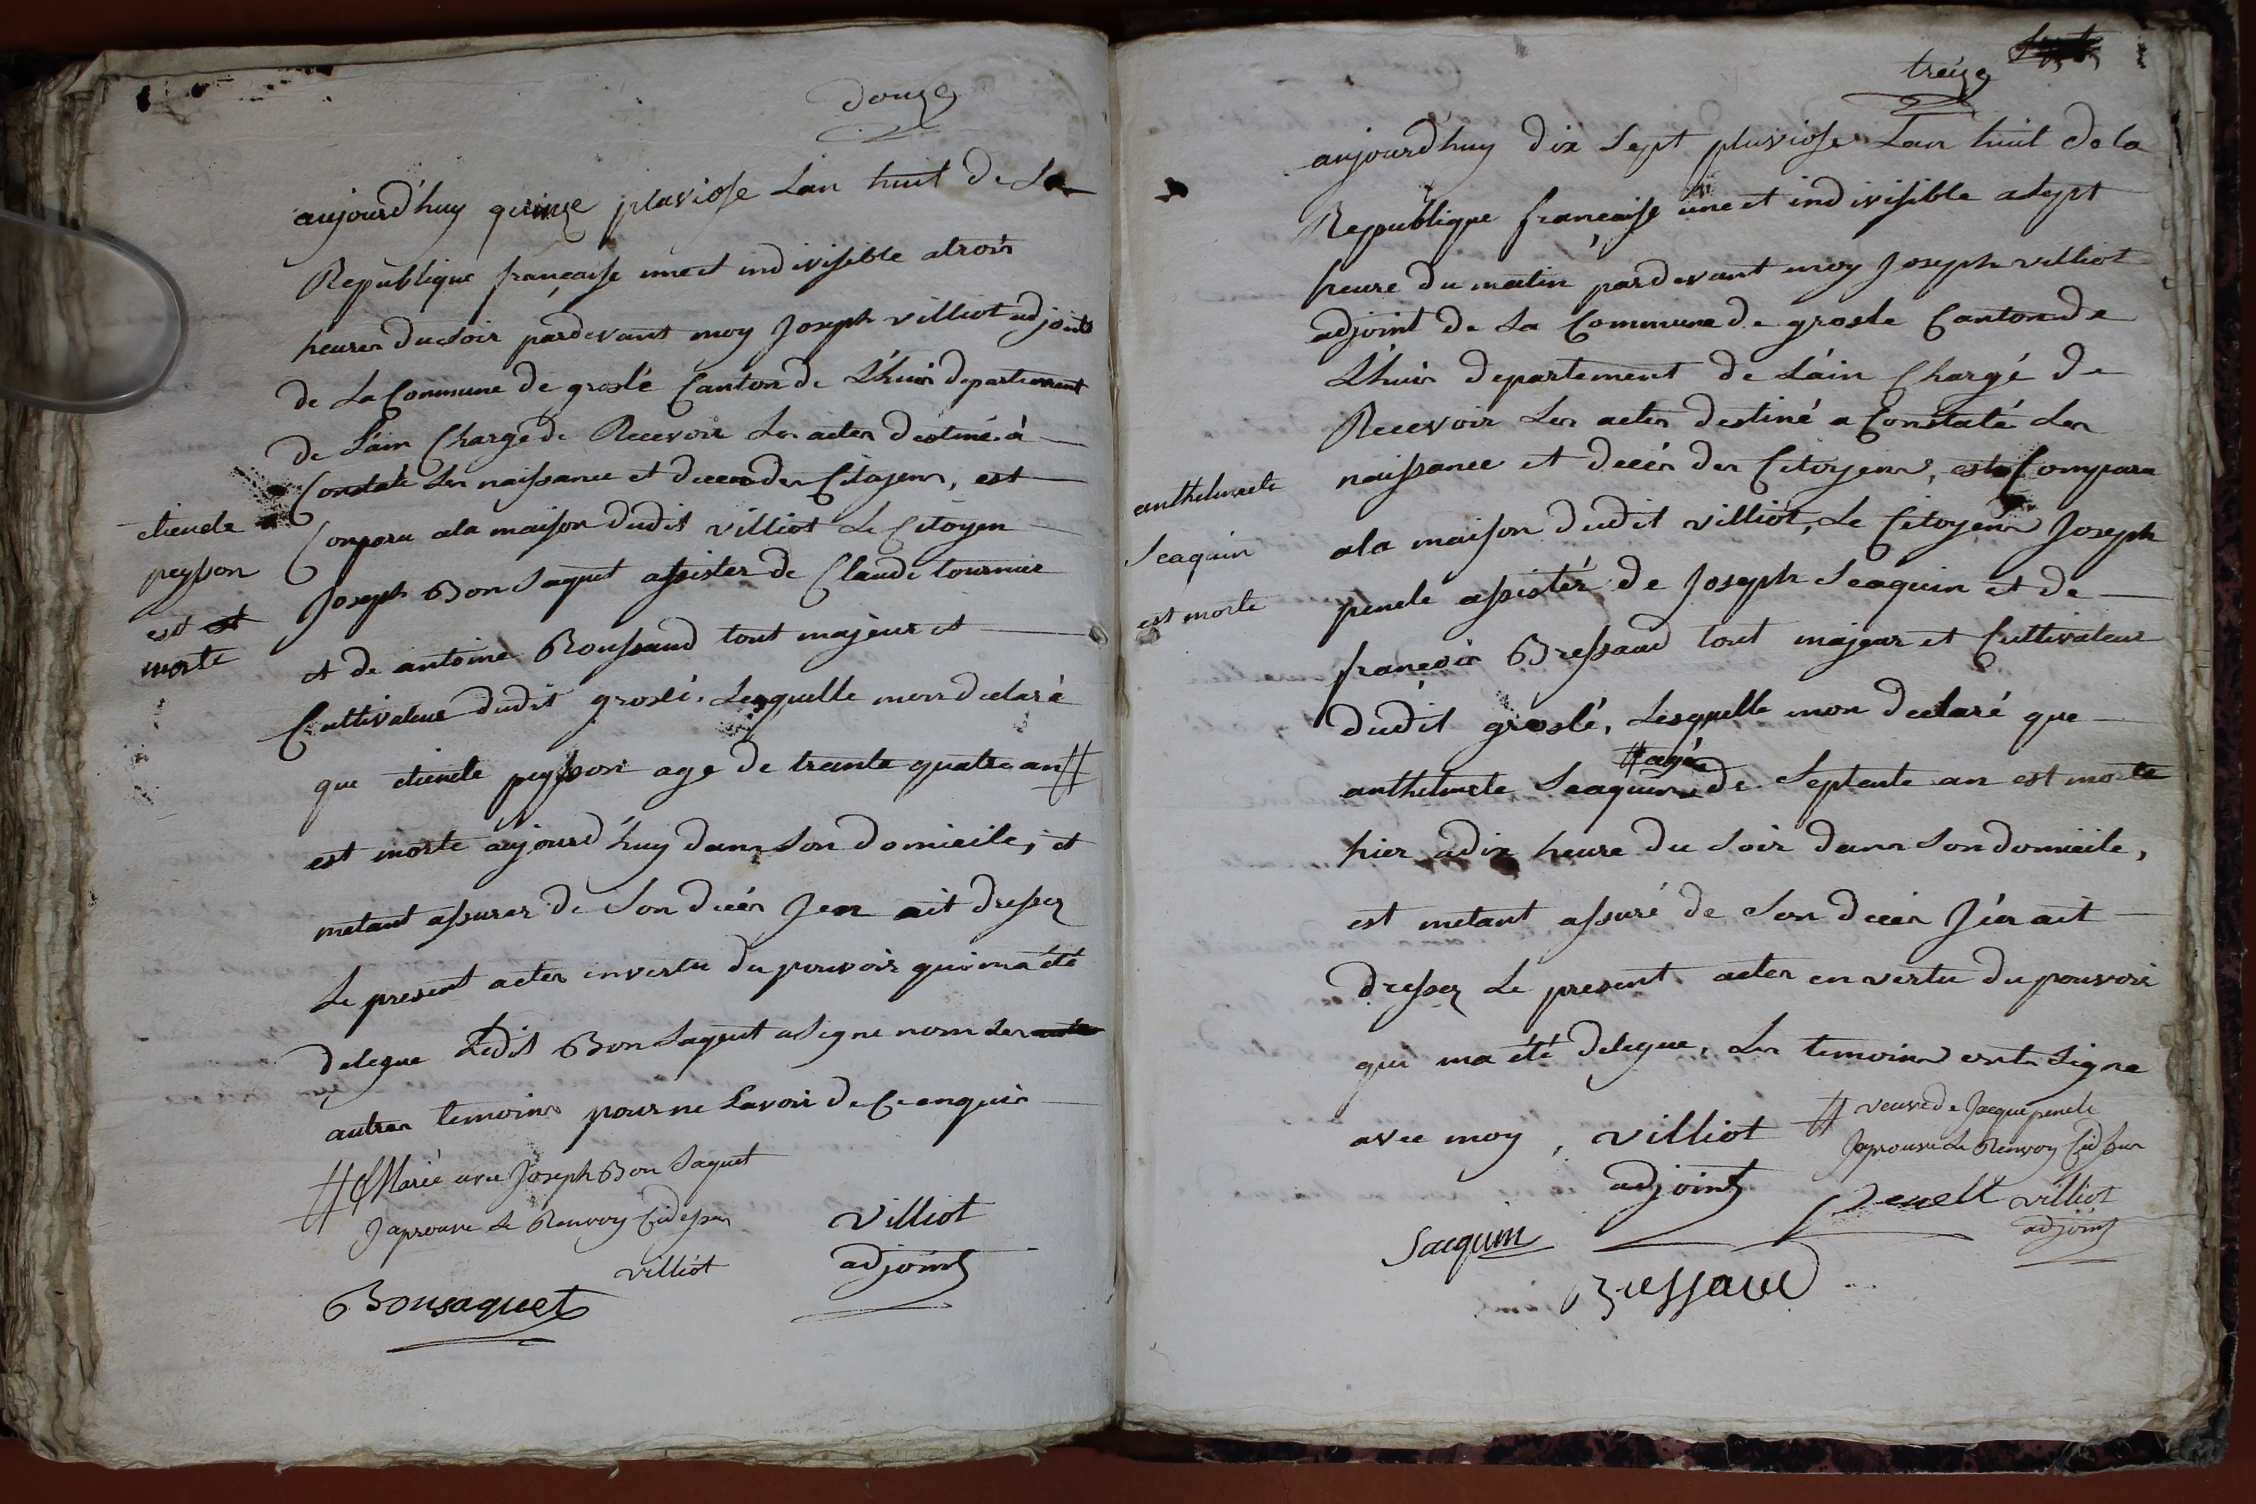 douze
aujourd'huy quinze pluviose Lan huit de La
Republique francaise une et indivisible a trois
heures du soir pardevant moy Joseph villiot adjoint
de La Commune de groslé Canton de Lhuis departement
de L'ain Chargé de Recevoir Les actes destinés à
Constaté Les naissance et deces des Citoyens, est
Comparu ala maison dudit villiot Le Citoyen
Joseph Bonsaquet assister de Claude tournier
et de antoine Boussaud tout majeur et
Cultivateur dudit groslé, Lesquelle mon declaré
que etienete peysson age de trante quatre an #
est morte aujourd'huy dans Son domicile, et
metant assurer de Son decés Jen ait dressez
Le present actes en vertu du pouvoir qui ma été
delegue Ledit Bonsaquet a Signe nom Les
autres temoins pour ne Savoir de Ce enquis
etienete
peysson
est est
morte
# Marié avec Joseph Bon Saquet
Japrouve Le Renvoy Cidessus
villiot
villiot
adjoint
Bonsaquet
treize
aujourd'huy dix Sept pluviose Lan huit de la
Republique francaise une et indivisible a Sept
heure du matin pardevant moy Joseph villiot
adjoint de La Commune de grosle Canton de
Lhuis departement de L'ain Chargé de
Recevoir Les actes destiné a Constaté Les
naissance et decés des Citoyens, est Comparu
ala maison dudit villiot, Le Citoyens Joseph
penele assistér de Joseph Seaquin et de
francois Bressaud tout majeur et Cultivateur
dudit groslé, Lesquelle mon declaré que
anthelmete Seaquin # agée de Septente an est morte
hier a dix heure du Soir dans Son domicile,
est metant assuré de Son decés J'en ait
dressez Le present actes en vertu du pouvoir
qui ma été delegue, Les temoins ont Signe
avec moy, villiot
adjoint
anthelmete
Seaquin
est morte
# veuve de Jacque penele
Japrouve Le Renvoy Cidessus
villiot
adjoint
Penelt
Sacquin
Bressaud